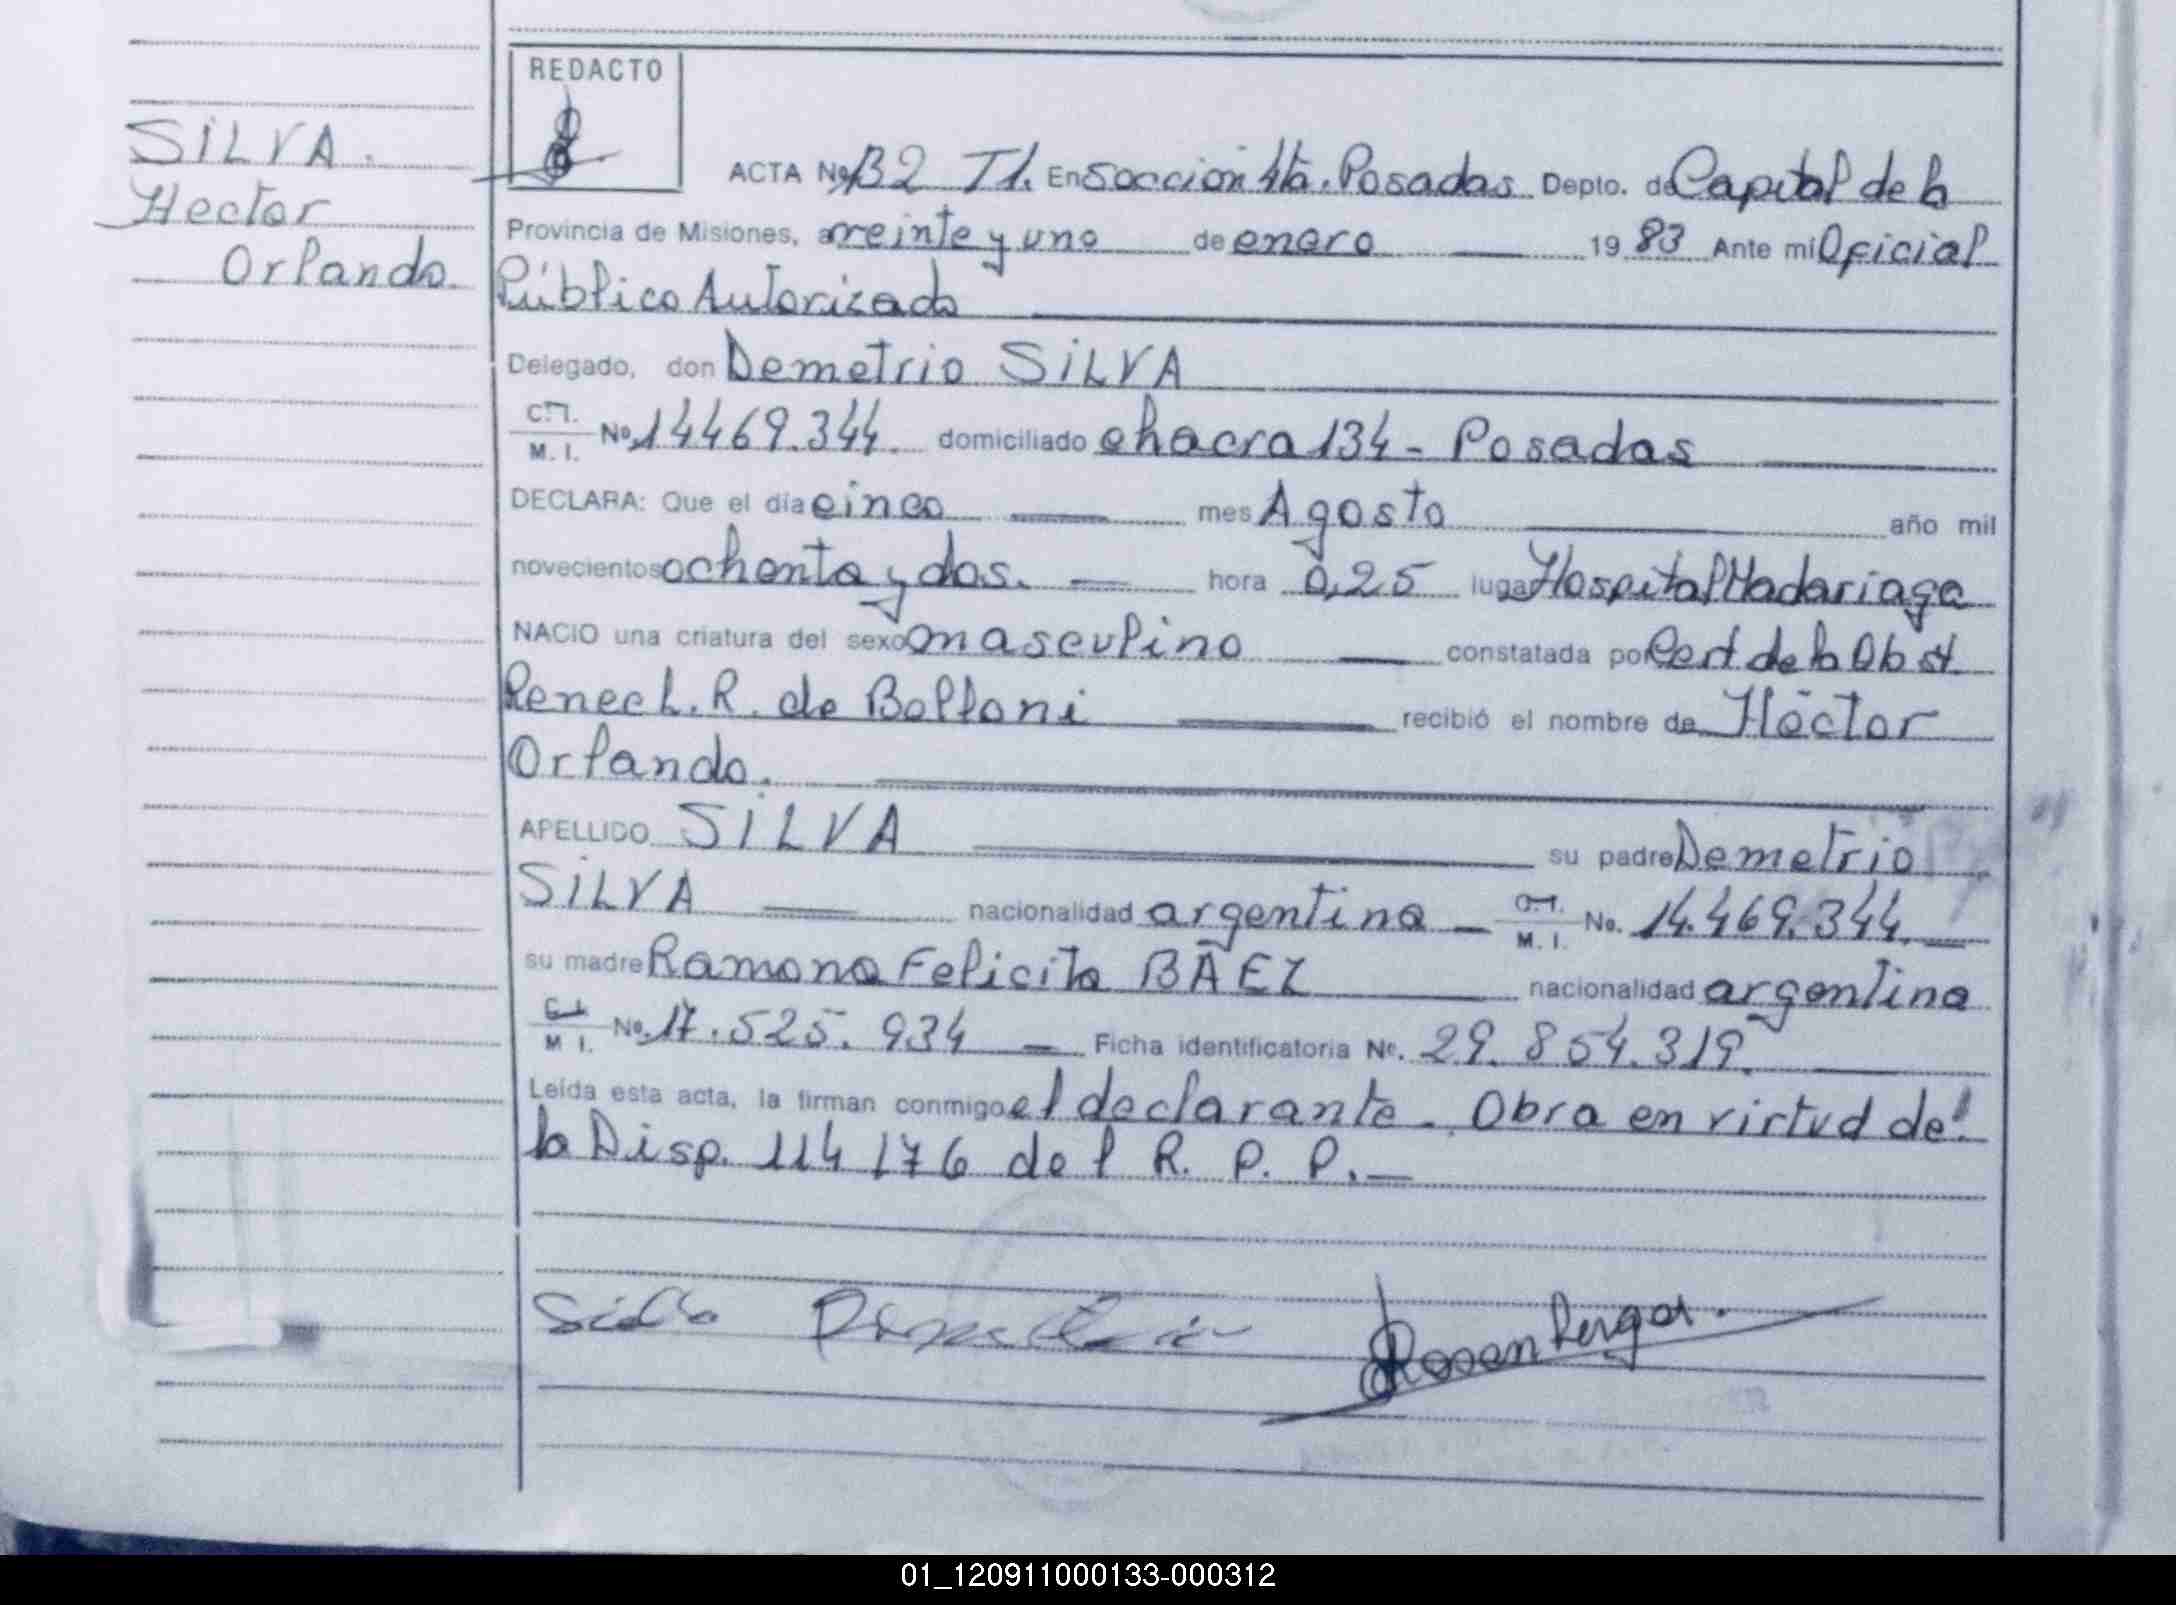 REDACTO
SILVA.
Hector
Orlando.
ACTA No B2 T1. En Sección 4ta. Posadas Depto. de Capital de la
Provincia de Misiones, a treinta y uno de enero 1983 Ante mi Oficial
Público Autorizado
Delegado, don Demetrio SILVA
C.I. M. I. No. 14469.344. domiciliado chacra 134 - Posadas
DECLARA: Que el día cinco mes Agosto año mil
novecientos ochenta y dos. hora 0,25 lugar Hospital Madariaga
NACIO una criatura del sexo masculino constatada por Cert. de la Obst.
Renee L. R. de Belloni recibió el nombre de Héctor
Orlando.
APELLIDO SILVA su padre Demetrio
SILVA nacionalidad argentina C.I. M. I. No. 14.469.344.
su madre Ramona Felicita BÁEZ nacionalidad argentina
C.I. M. I. No. 17.525.934 Ficha identificatoria No. 29.854.319.
Leída esta acta, la firman conmigo el declarante. Obra en virtud de
la Disp. 114/76 del R. P. P.
Silva Demetrio
Rosenberger.
01_120911000133-000312